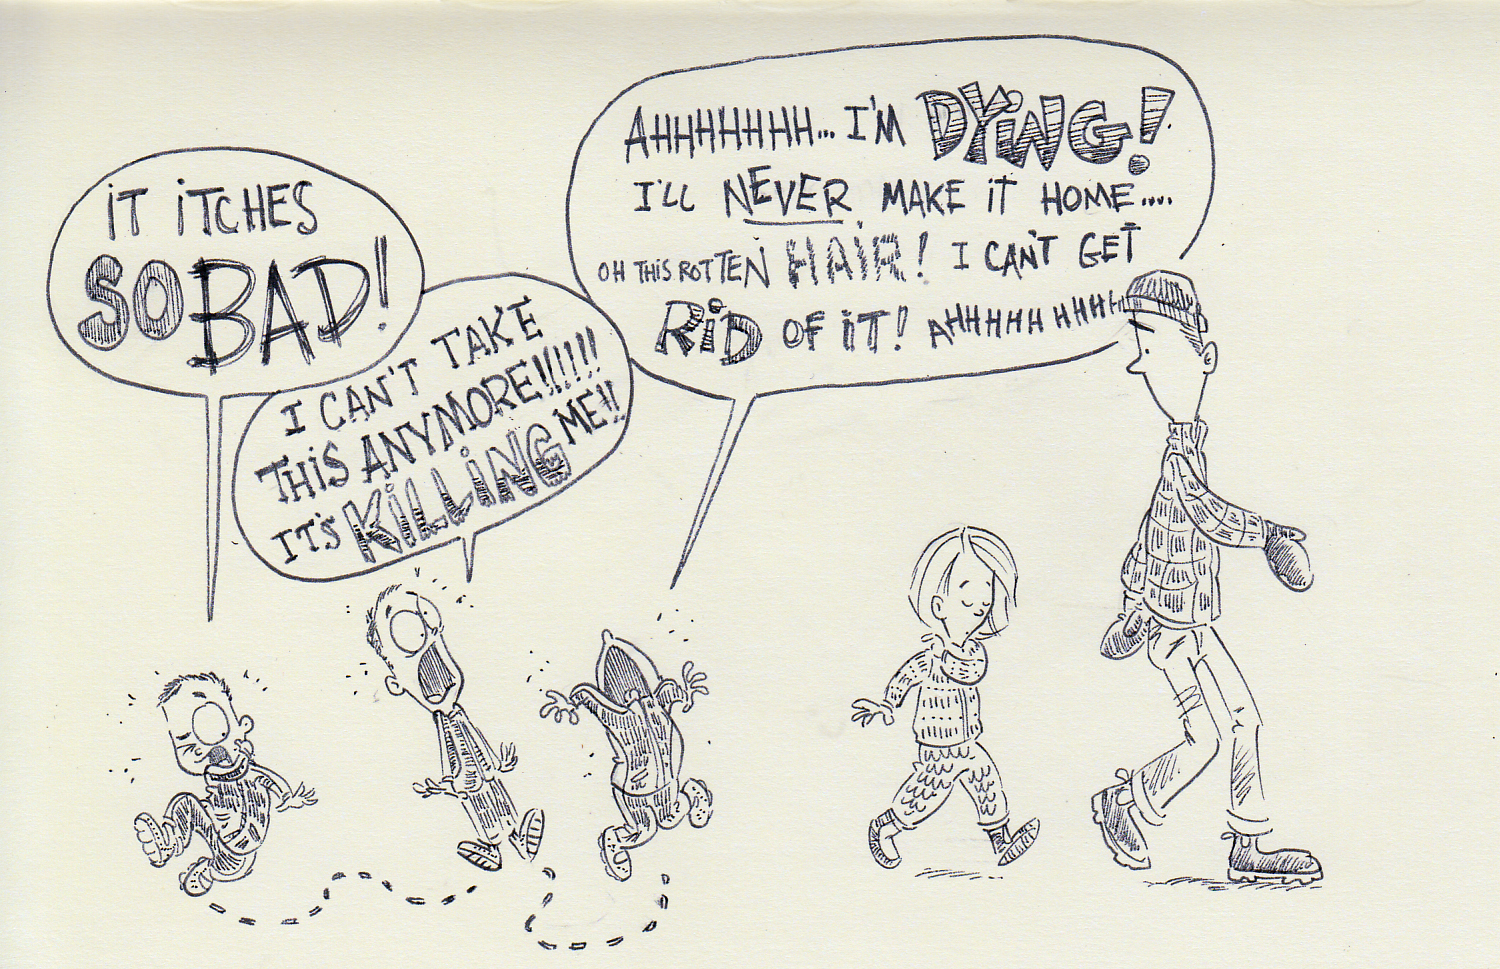 IT ITCHES
SO BAD!!
I CAN'T TAKE
THIS ANYMORE!!!!!!
IT'S KILLING ME!!
AHHHHHHH... I'M DYING!
I'LL NEVER MAKE IT HOME....
OH THIS ROTTEN HAIR! I CAN'T GET
RID OF IT! AHHHHH HHHH